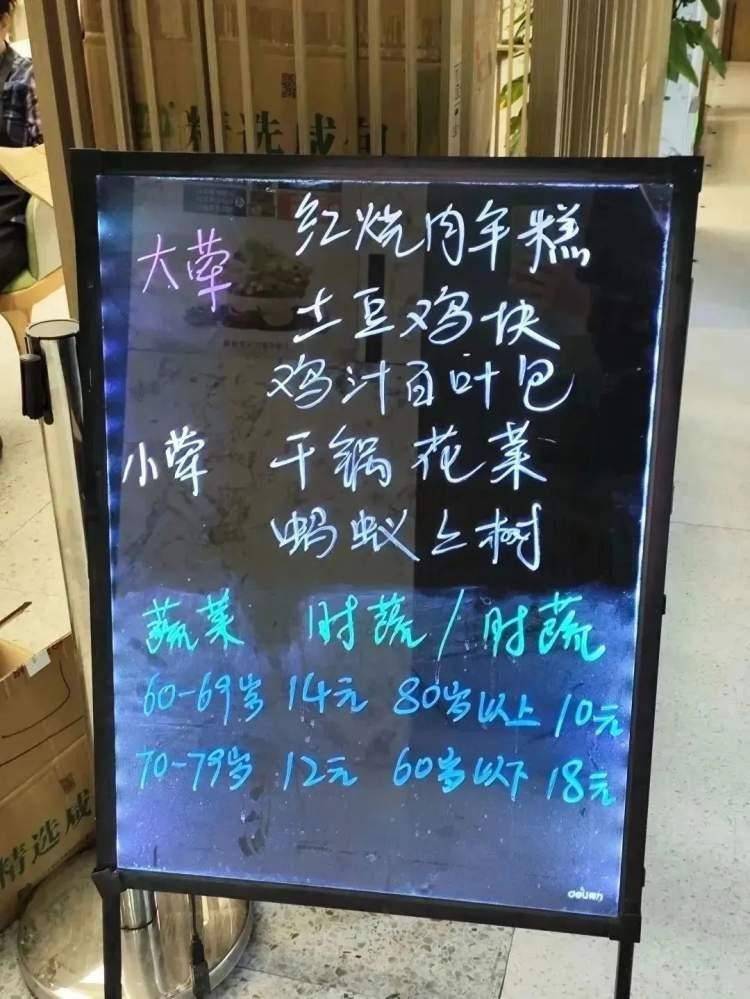 精选咸
红烧肉年糕
大荤
土豆鸡块
鸡汁百叶包
小荤 干锅花菜
蚂蚁上树
蔬菜 时蔬/时蔬
60-69岁 14元 80岁以上 10元
70-79岁 12元 60岁以下 18元
精选咸
deli得力